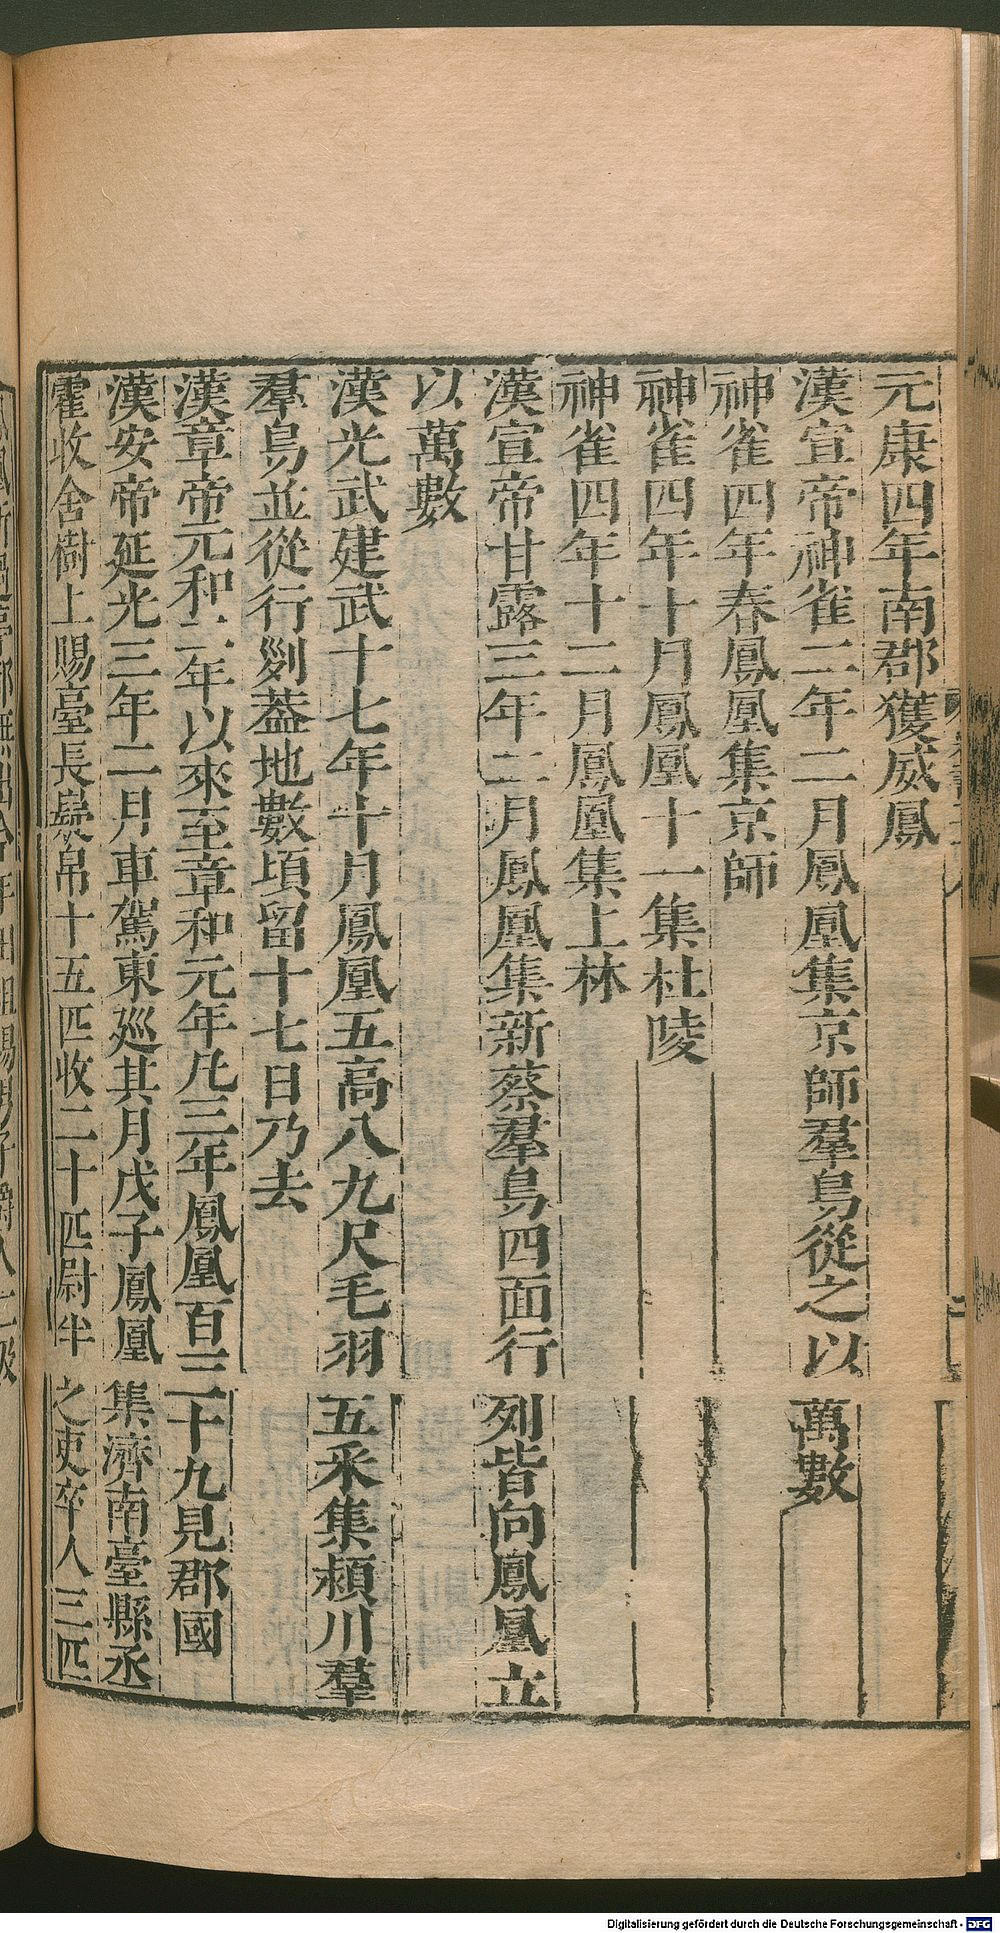 元康四年南郡獲威鳳
漢宣帝神雀二年二月鳳凰集京師羣鳥從之以萬數
神雀四年春鳳凰集京師
神雀四年十月鳳凰十一集杜陵
神雀四年十二月鳳凰集上林
漢宣帝甘露三年二月鳳凰集新蔡羣鳥四面行列皆向鳳凰立
以萬數
漢光武建武十七年十月鳳凰五高八九尺毛羽五采集潁川羣
羣鳥並從行列蓋地數頃留十七日乃去
漢章帝元和二年以來至章和元年凡三年鳳凰百三十九見郡國
漢安帝延光三年二月車駕東巡其月戊子鳳凰集濟南臺縣丞
霍收舍樹上賜臺長帛十五匹收二十匹尉半之吏卒人三匹
Digitalisierung gefördert durch die Deutsche Forschungsgemeinschaft - DFG